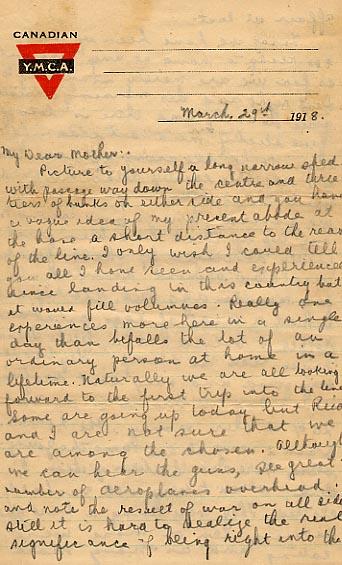 CANADIAN
Y.M.C.A.
March. 29th 1918.
My Dear Mother:-
Picture to yourself a long narrow shed
with passage way down the centre and three
tiers of bunks on either side and you have
a vague idea of my present abode at
the base a short distance to the rear
of the line. I only wish I could tell
you all I have seen and experienced
since landing in this country but
it would fill volumnes. Really one
experiences more here in a single
day than befalls the lot of an
ordinary person at home in a
lifetime. Naturally we are all looking
forward to the first trip into the line
Some are going up today but
and I are not sure that we
are among the chosen. Although
we can hear the guns, see great
number of aeroplanes overhead.
and note the result of war on all sides
still it is hard to realize the real
significance of being right into the